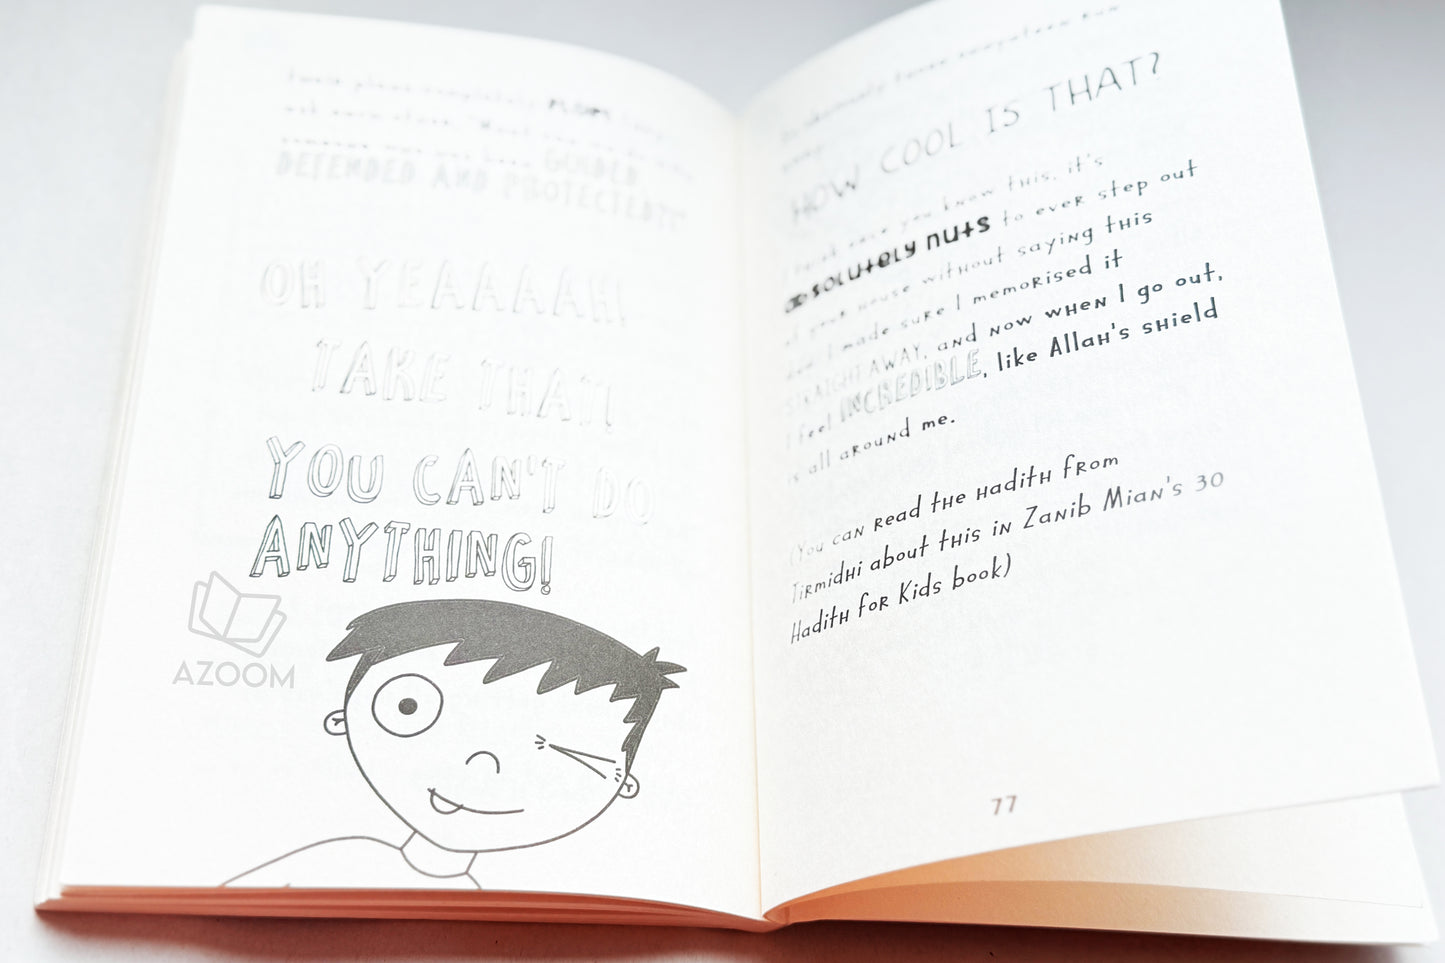 GUIDED
DEFENDED AND PROTECTED?"
OH YEAAAAH!
TAKE THAT!
YOU CAN'T DO
ANYTHING!
AZOOM
HOW COOL IS THAT?
I think once you know this, it's
absolutely nuts to ever step out
of your house without saying this
dua. I made sure I memorised it
STRAIGHT AWAY, and now when I go out,
I feel INCREDIBLE, like Allah's shield
is all around me.
(You can read the hadith from
Tirmidhi about this in Zanib Mian's 30
Hadith for Kids book)
77